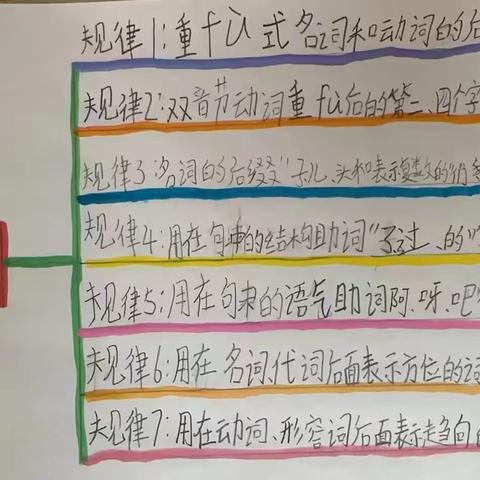 规律1:重fù式名词和动词的后
规律2:双音节动词重fù后的第二、四个字
规律3:名词的后缀"子、儿、头和表示复数的们等
规律4:用在句中的结构助词"了、过、的"
规律5:用在句末的语气助词阿、呀、吧
规律6:用在名词、代词后面表示方位的词
规律7:用在动词、形容词后面表示趋向的